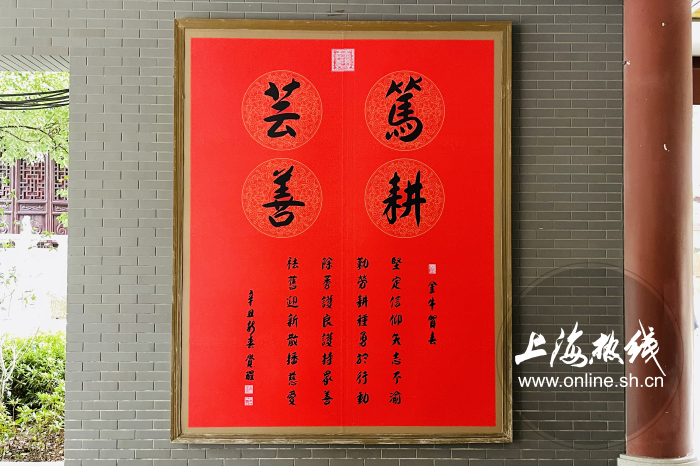 篤耕
芸善
金牛賀
堅定信仰矢志不渝
勤勞耕種勇於行動
除莠護良護持眾善
祛舊迎新散播慈愛
辛丑新春覺醒
上海热线
www.online.sh.cn